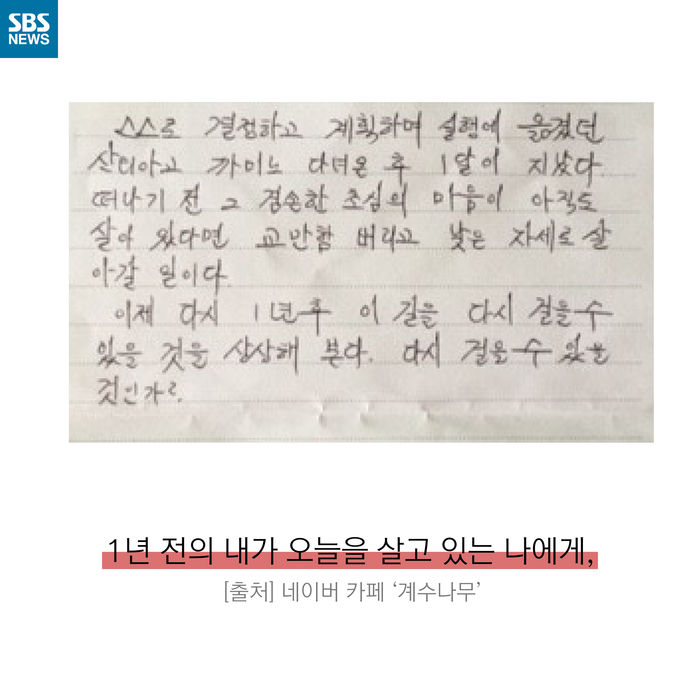 SBS
NEWS
스스로 결정하고 계획하며 실행에 옮겼던
산티아고 까미노 다녀온 후 1달이 지났다.
떠나기 전 그 겸손한 초심의 마음이 아직도
살아 있다면 교만함 버리고 낮은 자세로 살
아갈 일이다.
이제 다시 1년후 이 길을 다시 걸을수
있을 것을 상상해 본다. 다시 걸을수 있을
것인가?
1년 전의 내가 오늘을 살고 있는 나에게,
[출처] 네이버 카페 ‘계수나무’